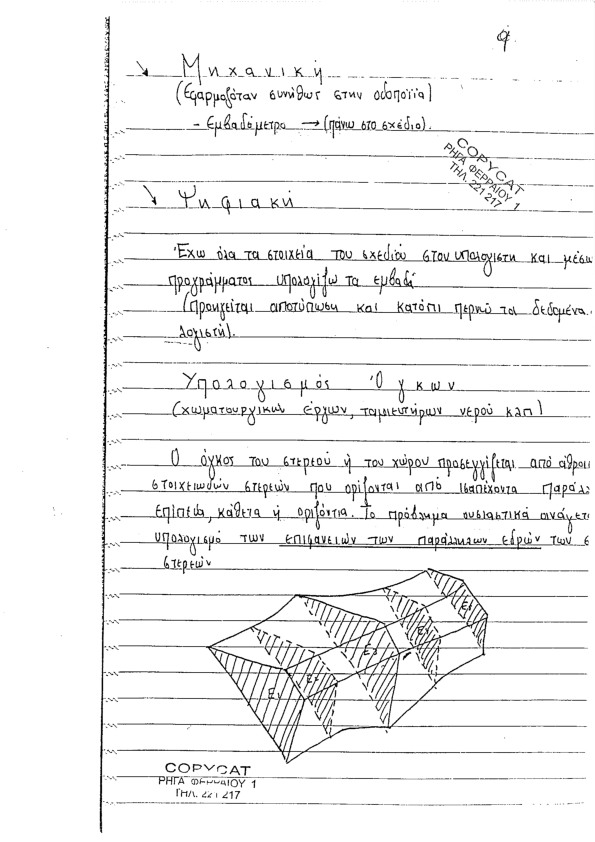 9
Μηχανική
(Εφαρμοζόταν συνήθως στην οδοποιϊα)
- Εμβαδόμετρο → (πάνω στο σχέδιο).
COPYCAT
ΡΗΓΑ ΦΕΡΡΑΙΟΥ 1
ΤΗΛ. 221 217
Ψηφιακή
Έχω όλα τα στοιχεία του σχεδίου στον υπολογιστη και μέσω
προγράμματος υπολογίζω τα εμβαδά
(Προηγείται αποτύπωση και κατόπι περνώ τα δεδομένα
λογιστή).
Υπολογισμός Όγκων
(χωματουργικών έργων, ταμιευτήρων νερού κλπ)
Ο όγκος του στερεού ή του χώρου προσεγγίζεται από άθροι
στοιχειωδών στερεών που ορίζονται από ισαπέχοντα παράλ
επίπεδα, κάθετα ή οριζόντια. Το πρόβλημα ουσιαστικά ανάγετ
υπολογισμό των επιφανειών των παράλληλων εδρών των σ
στερεών
E1 E2 E3
COPYCAT
ΡΗΓΑ ΦΕΡΡΑΙΟΥ 1
ΤΗΛ. 221 217